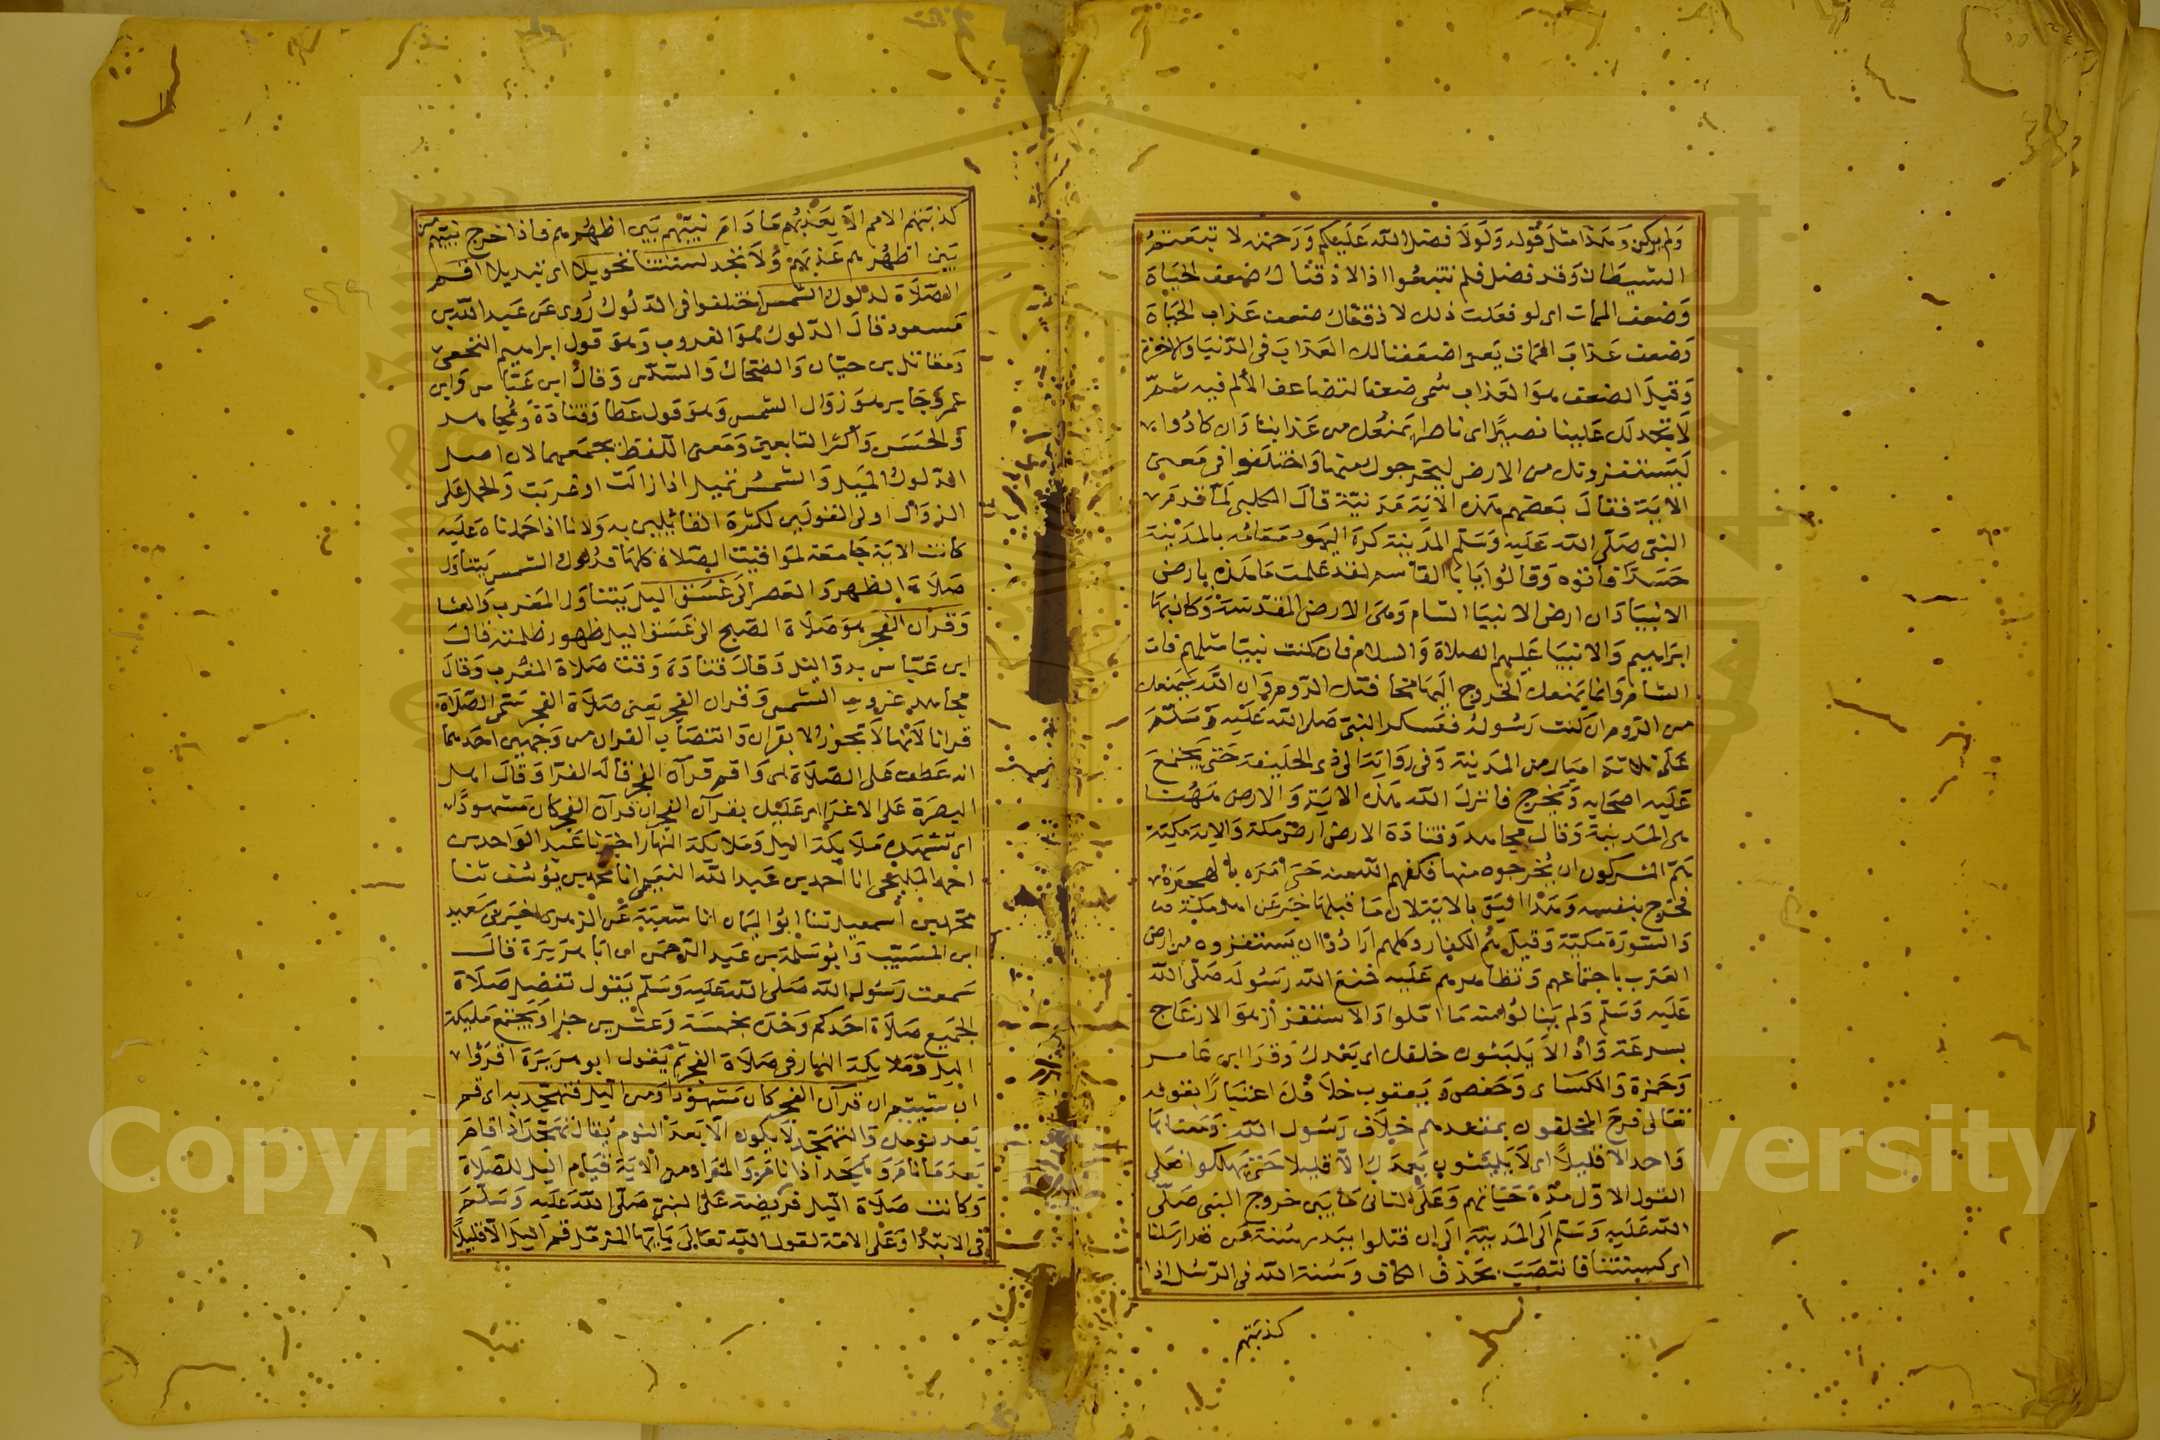 ولم يركن وهذا مثل قوله ولولا فضل الله عليكم ورحمته لاتبعتم
الشيطان وقد فضل فلم تتبعوا اذا لاذقناك ضعف الحياة
وضعف الممات اى لو فعلت ذلك لاذقناك ضعف عذاب الحياة
وضعف عذاب الممات يعنى اضعفنا لك العذاب فى الدنيا والاخرة
وقيل الضعف هو العذاب سمى ضعفا لتضاعف الالم فيه ثم
لا تجد لك علينا نصيرا اى ناصرا يمنعك من عذابنا وان كادوا
ليستفزونك من الارض ليخرجوك منها واختلفوا فى معنى
الاية فقال بعضهم هذه الاية مدنية قال الكلبى لما قدم
النبى صلى الله عليه وسلم المدينة كره اليهود مقامه بالمدينة
حسدا فاتوه وقالوا يا ابا القاسم لقد علمت ما هذه بارض
الانبيا وان ارض الانبيا الشام وهى الارض المقدسة وكان بها
ابراهيم والانبيا عليهم الصلاة والسلام فان كنت نبيا مثلهم فات
الشام وانما يمنعك الخروج اليها مخافتك الروم وان الله سيمنعك
من الروم ان كنت رسوله فعسكر النبى صلى الله عليه وسلم
على ثلاثة اميال من المدينة وفى رواية الى ذى الحليفة حتى يجتمع
عليه اصحابه ويخرج فانزل الله هذه الاية والارض ههنا
هى المدينة وقال مجاهد وقتادة الارض ارض مكة والاية مكية
هم المشركون ان يخرجوه منها فكفهم الله عنه حتى امره بالهجرة
فخرج بنفسه وهذا اليق بالاية لان ما قبلها خبر عن اهل مكة
والسورة مكية وقيل هم الكفار وكلهم ارادوا ان يستفزوه من ارض
العرب باجتماعهم وتظاهرهم عليه فمنع الله رسوله صلى الله
عليه وسلم ولم ينالوا منه ما املوا والاستفزاز هو الازعاج
بسرعة واذا لا يلبثون خلفك اى بعدك وقرا ابن عامر
وحمزة والكسائى وحفص ويعقوب خلافك اعتبارا بقوله
تعالى فرح المخلفون بمقعدهم خلاف رسول الله ومعناهما
واحد الا قليلا اى لا يلبثون بعدك الا قليلا حتى يهلكوا فعلى
القول الاول مدة حياتهم وعلى الثانى ما بين خروج النبى صلى
الله عليه وسلم الى المدينة الى ان قتلوا ببدر سنة من قد ارسلنا
اى كسنتنا فانتصب بحذف الكاف وسنة الله فى الرسل اذا
كذبتهم
كذبتهم الامم الا يعذبهم ما دام نبيهم بين اظهرهم فاذا خرج نبيهم من
بين اظهرهم عذبهم ولا تجد لسنتنا تحويلا اى تبديلا اقم
الصلاة لدلوك الشمس اختلفوا فى الدلوك روى عن عبد الله بن
مسعود قال الدلوك هو الغروب وهو قول ابراهيم النخعى
ومقاتل بن حيان والضحاك والسدى وقال ابن عباس وابن
عمر وجابر هو زوال الشمس وهو قول عطا وقتادة ومجاهد
والحسن واكثر التابعين ومعنى اللفظ يجمعهما لان اصل
الدلوك الميل والشمس تميل اذا زالت او غربت والحمل على
الزوال اولى القولين لكثرة القائلين به ولانا اذا حملناه عليه
كانت الاية جامعة لمواقيت الصلاة كلها فدلوك الشمس يتناول
صلاة الظهر والعصر الى غسق الليل يتناول المغرب والعشا
وقران الفجر هو صلاة الصبح الى غسق الليل ظهور ظلمته قال
ابن عباس بدو الليل وقال قتادة وقت صلاة المغرب وقال
مجاهد غروب الشمس وقران الفجر يعنى صلاة الفجر سمى الصلاة
قرانا لانها لا تجوز الا بقران وانتصاب القران من وجهين احدهما
انه عطف على الصلاة اى واقم قرآن الفجر قاله الفرا وقال اهل
البصرة على الاغرا اى عليك بقرآن الفجر ان قرآن الفجر كان مشهودا
اى تشهده ملايكة اليل وملايكة النهار اخبرنا عبد الواحد بن
احمد المليحى انا احمد بن عبد الله النعيمى انا محمد بن يوسف ثنا
محمد بن اسمعيل ثنا ابو اليمان انا شعيب عن الزهرى اخبرنى سعيد
ابن المسيب وابو سلمة بن عبد الرحمن ان ابا هريرة قال
سمعت رسول الله صلى الله عليه وسلم يقول تفضل صلاة
الجميع صلاة احدكم وحده بخمسة وعشرين جزا ويجتمع مليكة
اليل وملايكة النهار فى صلاة الفجر ثم يقول ابو هريرة اقروا
ان شيتم ان قرآن الفجر كان مشهودا ومن اليل فتهجد به اى قم
بعد نومك والتهجد لا يكون الا بعد النوم يقال تهجد اذا قام
بعد ما نام وهجد اذا نام والمراد من الاية قيام اليل للصلاة
وكانت صلاة اليل فريضة على النبى صلى الله عليه وسلم
فى الابتدا وعلى الامة لقوله تعالى يا ايها المزمل قم اليل الا قليلا
Copyright © King Saud University